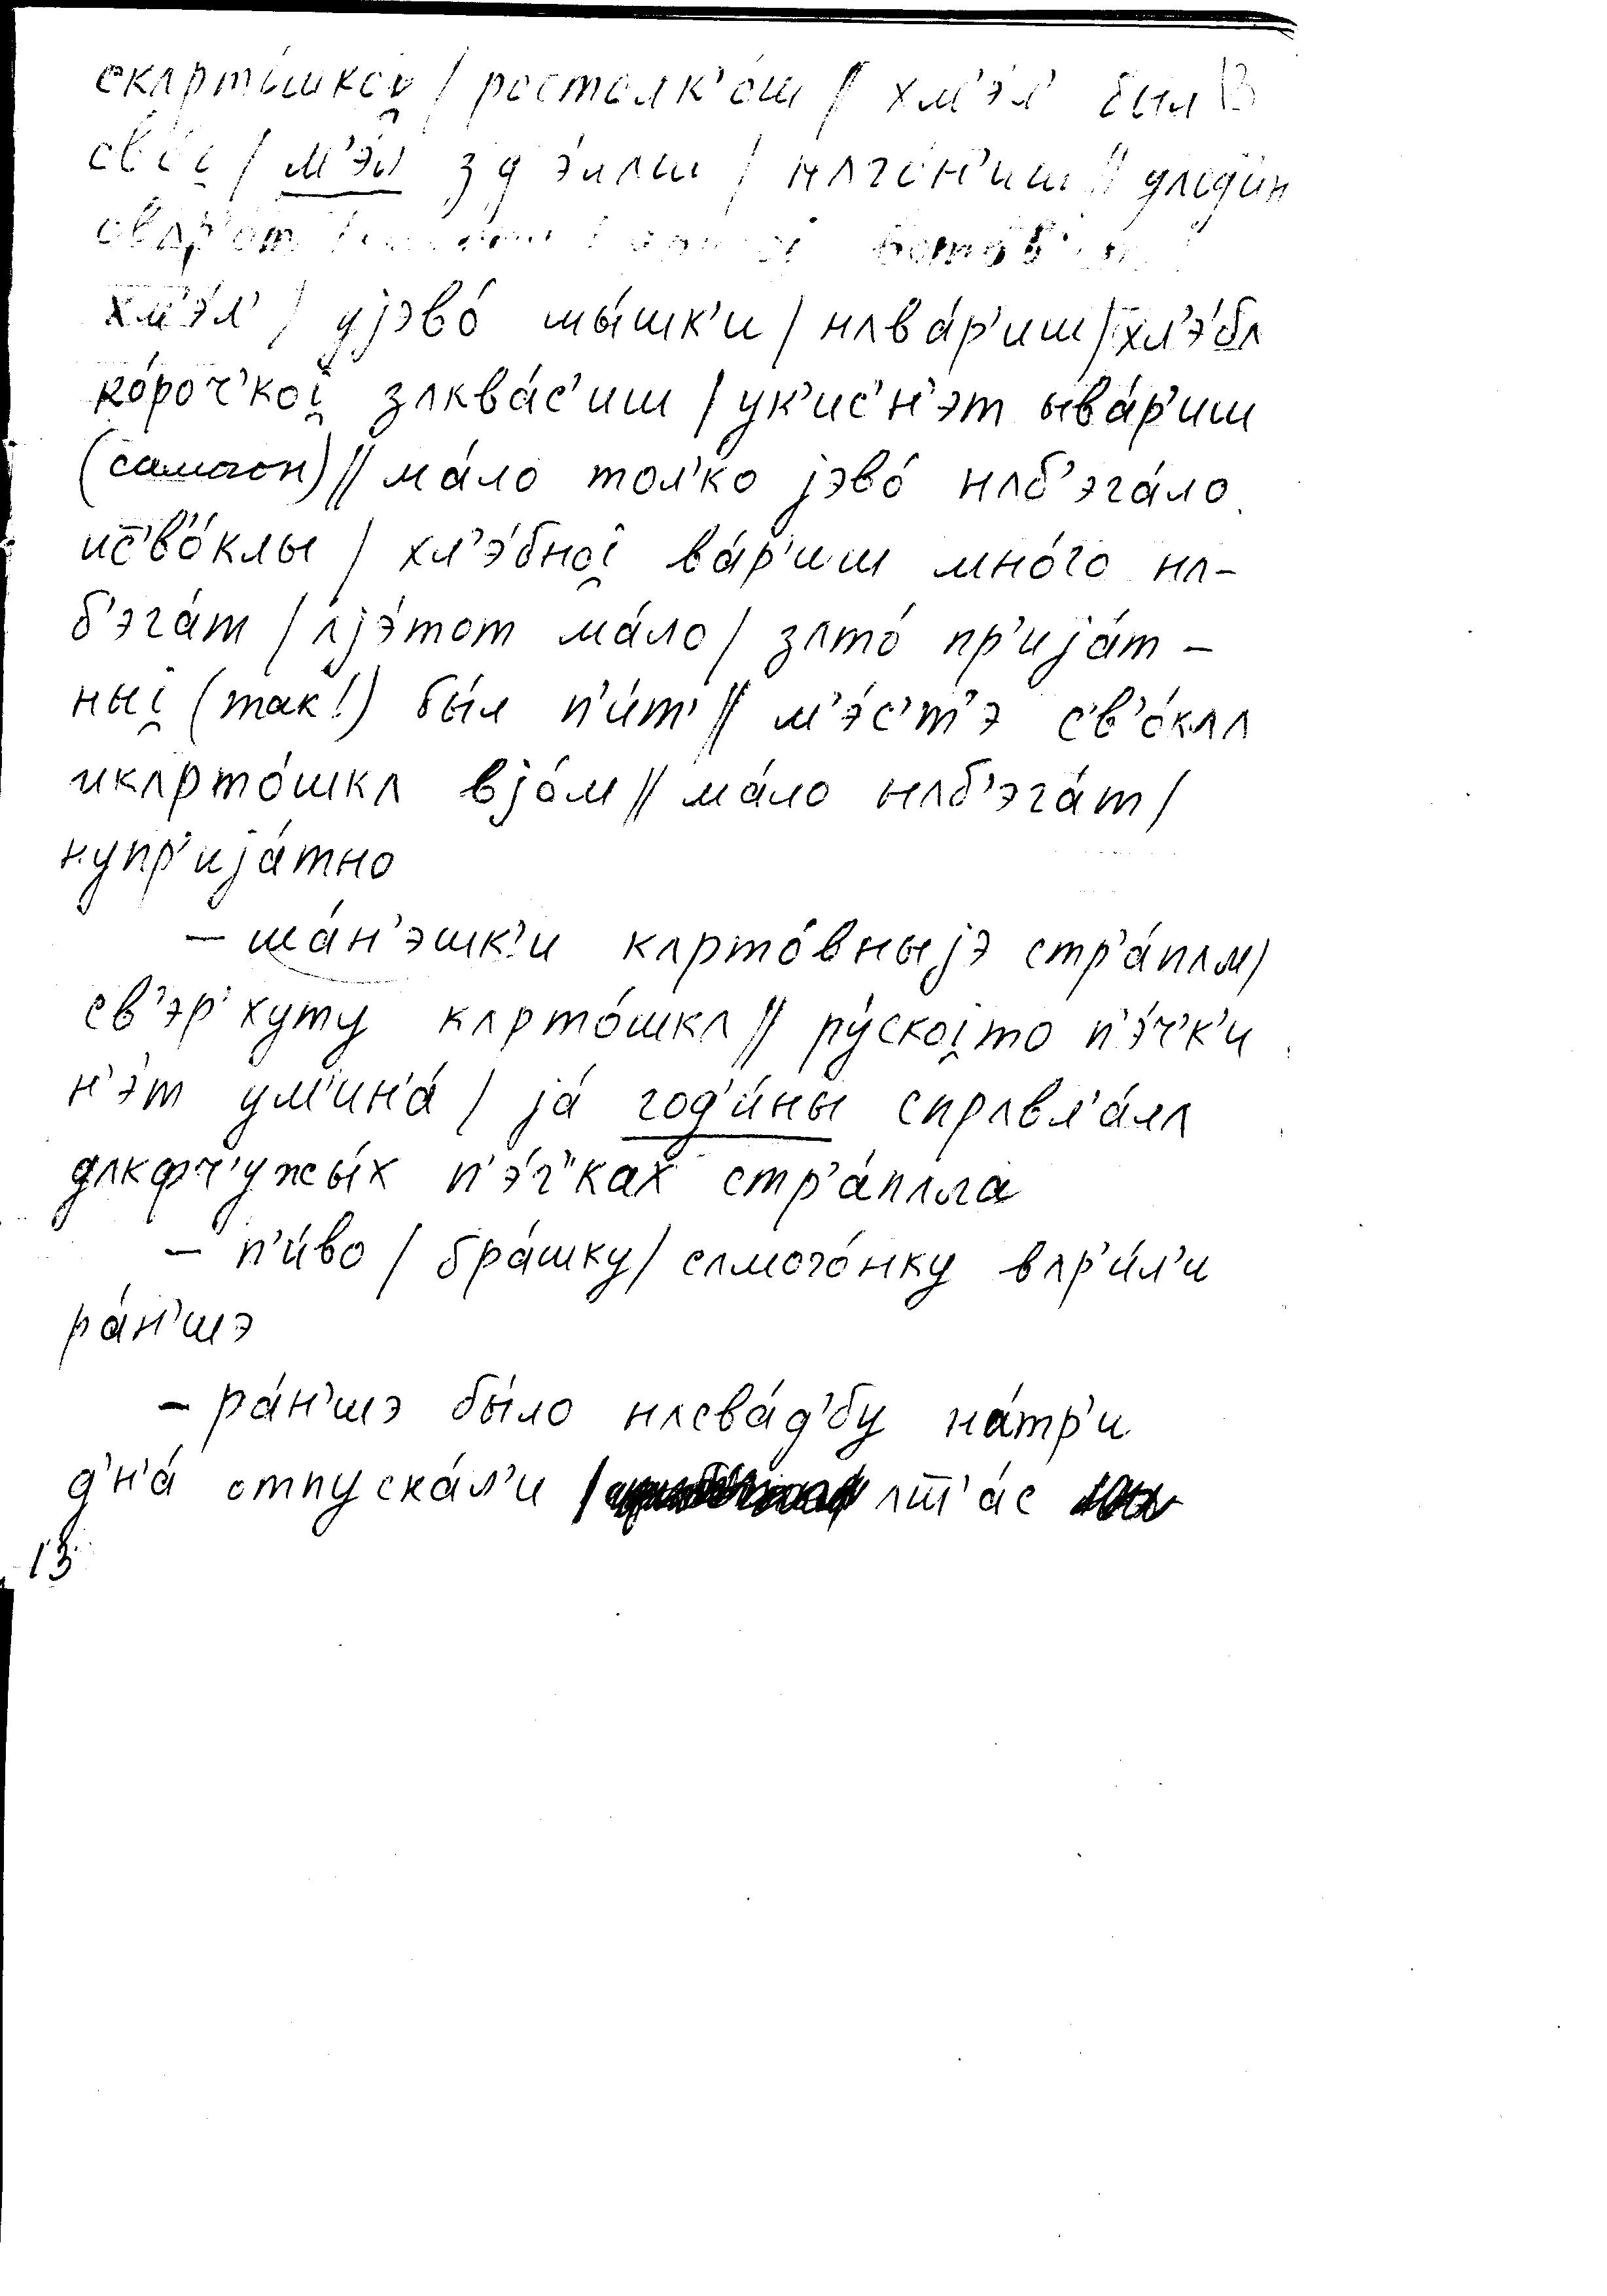 скʌрто́шкоi̯ / ростолк'о́ш // хм'э́л' был
сво́i̯ / м'э́л зд'э́лʌш / нʌго́н'иш //
хм'э́л' / уjэво́ мы́шк'и / нʌва́р'иш / хл'э́бʌ
ко́роч'коi̯ зʌква́с'иш / ук'ис'н'эт ыва́р'иш
(самогон) // ма́ло тол'ко jэво́ нʌб'эга́ло
ис'в'о́клы / хл'э́бноi̯ ва́р'иш мно́го нʌ–
б'эга́т / ʌjэ́тот ма́ло / зʌто́ пр'иjа́т –
ныi̯ (так!) бы́л п'и́т' // м'э́с'т'э с'в'о́клʌ
икʌрто́шкʌ вjо́м // ма́ло нʌб'эга́т /
нупр'иjа́тно
– ша́н'эшк'и кʌрто́вныjэ стр'а́пʌм /
св'эр'хуту кʌрто́шкʌ // ру́скоi̯то п'э́ч'к'и
н'э́т ум'ин'а́ / jа́ год'и́ны спрʌвл'а́лʌ
дʌкфч'ужы́х п'э́ч'ках стр'а́пʌла
– п'и́во / бра́шку / сʌмого́нку вʌр'и́л'и
ра́н'шэ
– ра́н'шэ бы́ло нʌсва́д'бу на́тр'и
д'н'а́ отпуска́л'и / ʌш'а́с
13